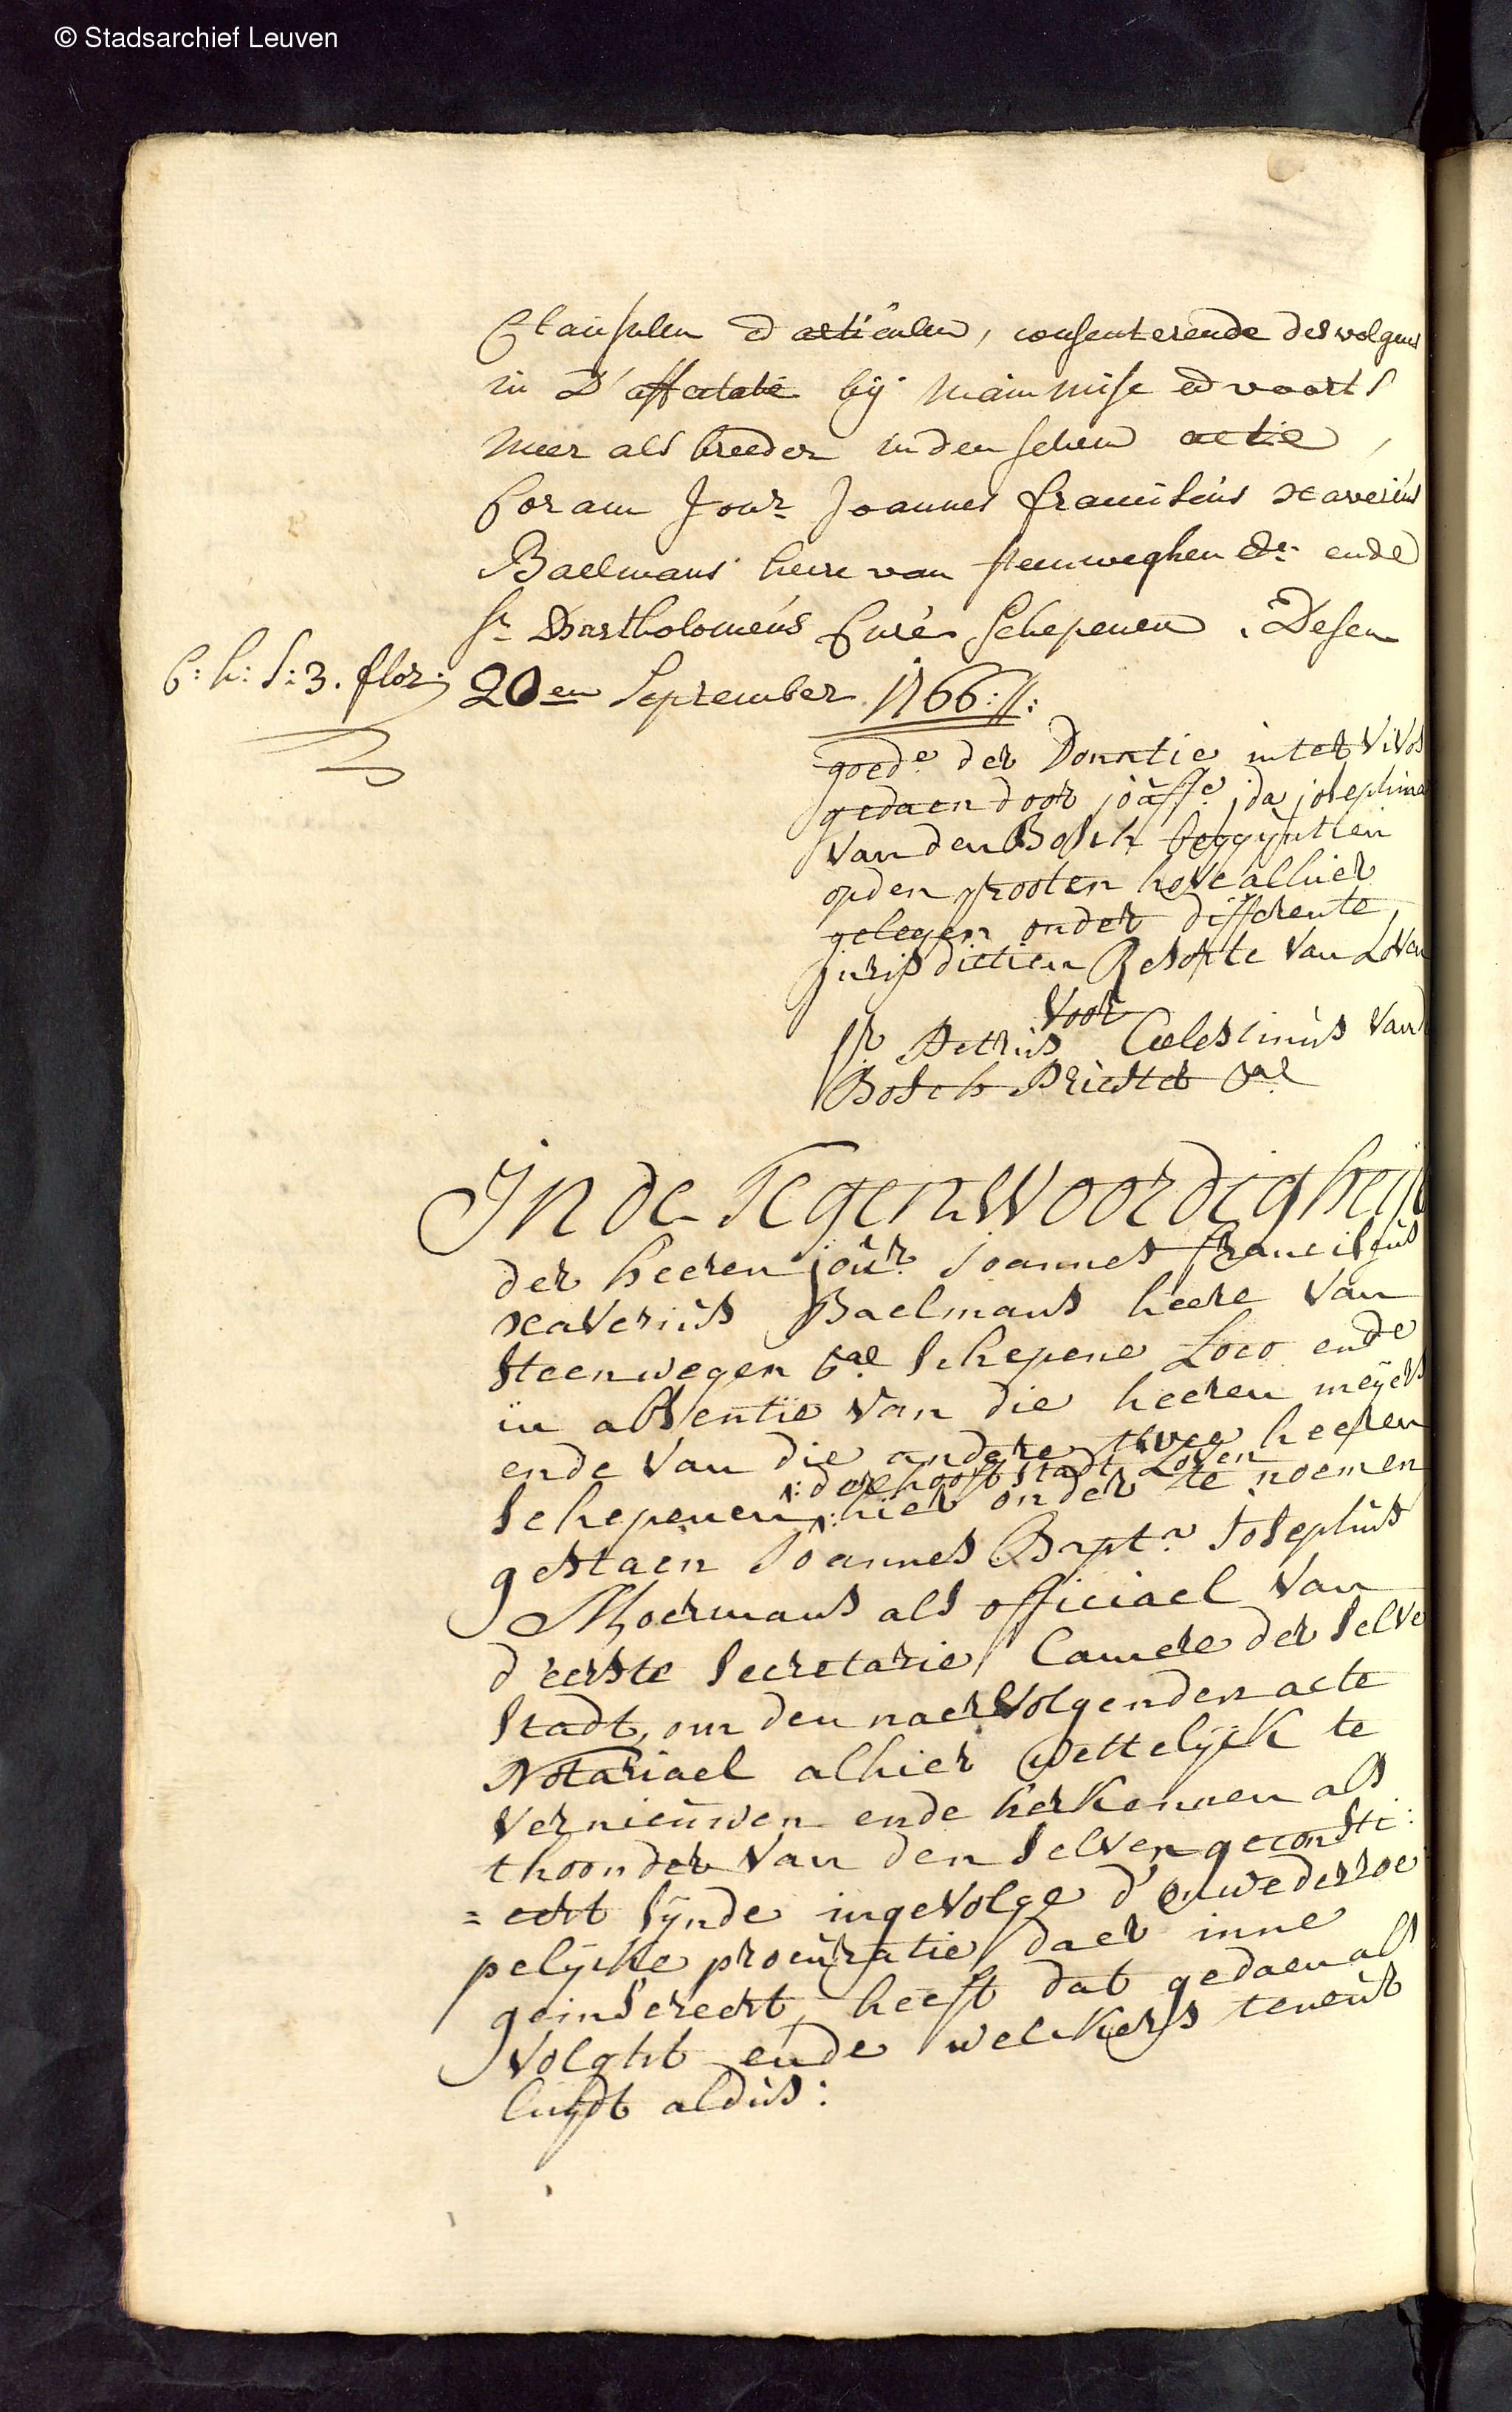 © Stadsarchief Leuven
Clausulen ed articulen, consenterende desvolgens
in d'affectatie bij mainmise ed voorts
meer als breeder in den selven actie,
Coram Jonr. Joannes franciscus xaverius
Baelmans heere van steenweghen etc. ende
Sr. Bartholomeus Curé Schepenen, Desen
C: h: S: 3. flor: 20en September 1766:
goede. der Donatie inter Vivos
gedaen door joffe. ida josephina
Van den Bosch beggijntien
op den grooten hove alhier
gelegen onder differente
jurisdictien Resorte Van Loven
Voor
Sr. Petrus Coelestinus Vand
Bosch Priester &a.
In de Tegenwoordigheijt
der heeren jour. joannes franciscus
xaverius Baelmans heere Van
Steenwegen &a. Schepene Loco ende
in absentie Van die heeren meyers
ende Van die andere twee heeren
:der hooft stadt Loven
Schepenen, hier onder te noemen
gestaen Joannes Bapta. Josephus
Moermans als officiael Van
d'eerste Secretarie Camere der Selve
Stadt, om den naervolgenden acte
Notariael alhier wettelijck te
Vernieuwen ende herkennen als
thoonder Van den Selven geconsti:
=eert Sijnde ingevolge d'onwederroe
pelijcke procuratie daer inne
geinsereert, heeft dat gedaen als
Volght ende welckers teneur
luijdt aldus: